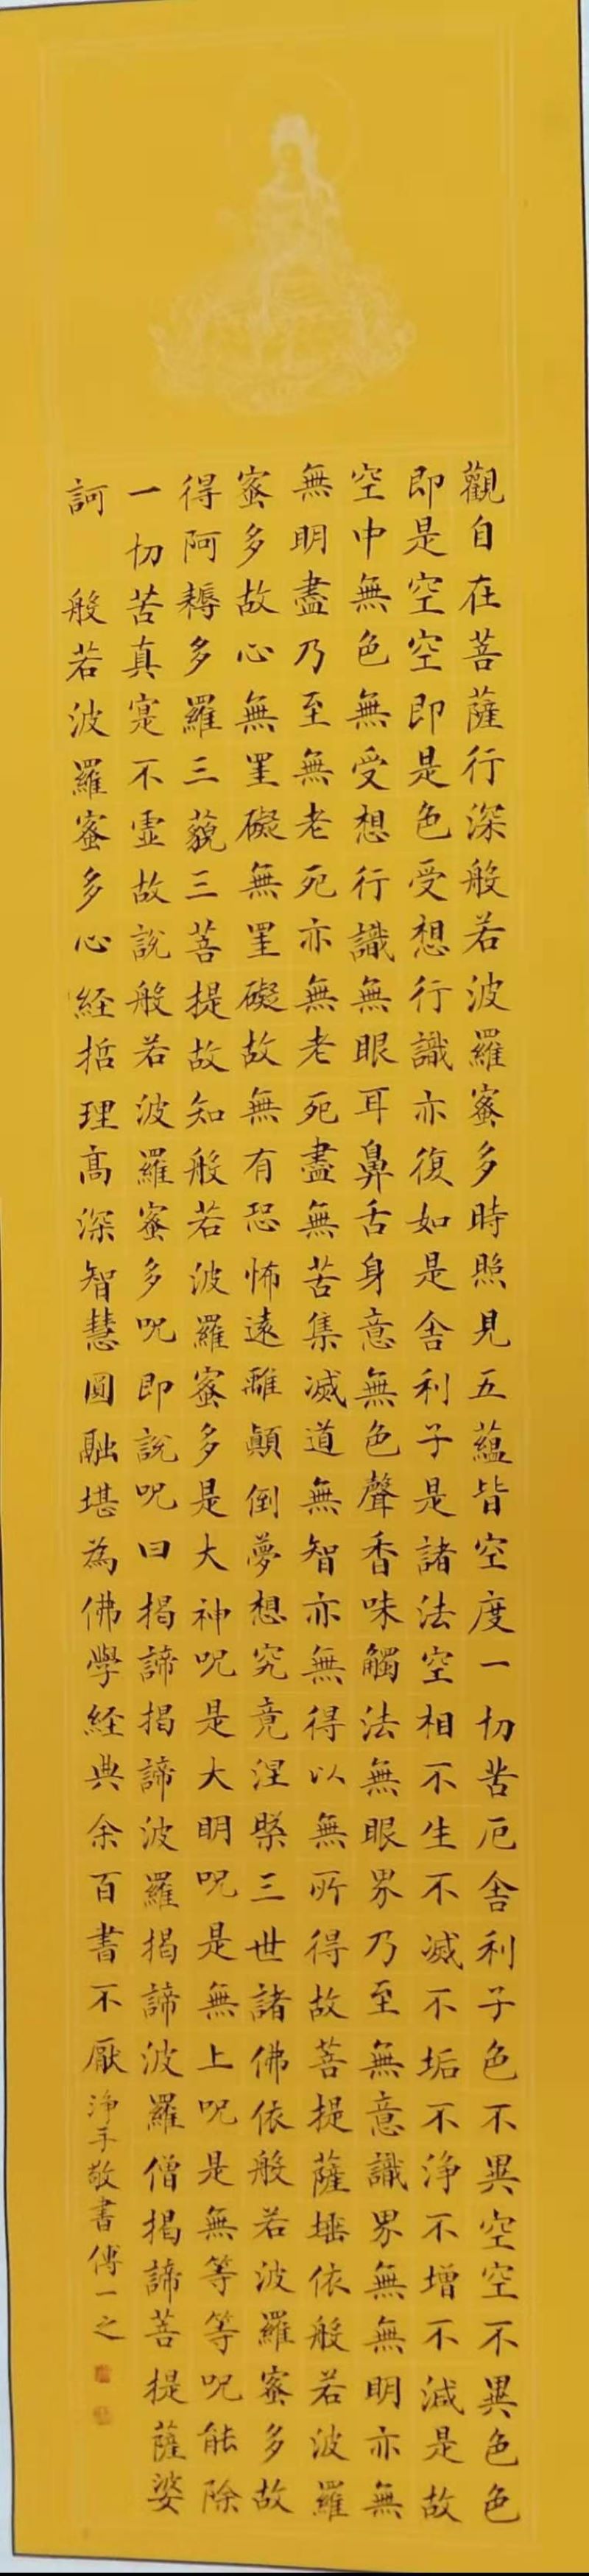 觀自在菩薩行深般若波羅蜜多時照見五蘊皆空度一切苦厄舍利子色不異空空不異色色
即是空空即是色受想行識亦復如是舍利子是諸法空相不生不滅不垢不淨不增不減是故
空中無色無受想行識無眼耳鼻舌身意無色聲香味觸法無眼界乃至無意識界無無明亦無
無明盡乃至無老死亦無老死盡無苦集滅道無智亦無得以無所得故菩提薩埵依般若波羅
蜜多故心無罣礙無罣礙故無有恐怖遠離顛倒夢想究竟涅槃三世諸佛依般若波羅蜜多故
得阿耨多羅三藐三菩提故知般若波羅蜜多是大神呪是大明呪是無上呪是無等等呪能除
一切苦真寔不虛故說般若波羅蜜多呪即說呪曰揭諦揭諦波羅揭諦波羅僧揭諦菩提薩婆
訶 般若波羅蜜多心經哲理高深智慧圓融堪為佛學經典余百書不厭淨手敬書傅一之